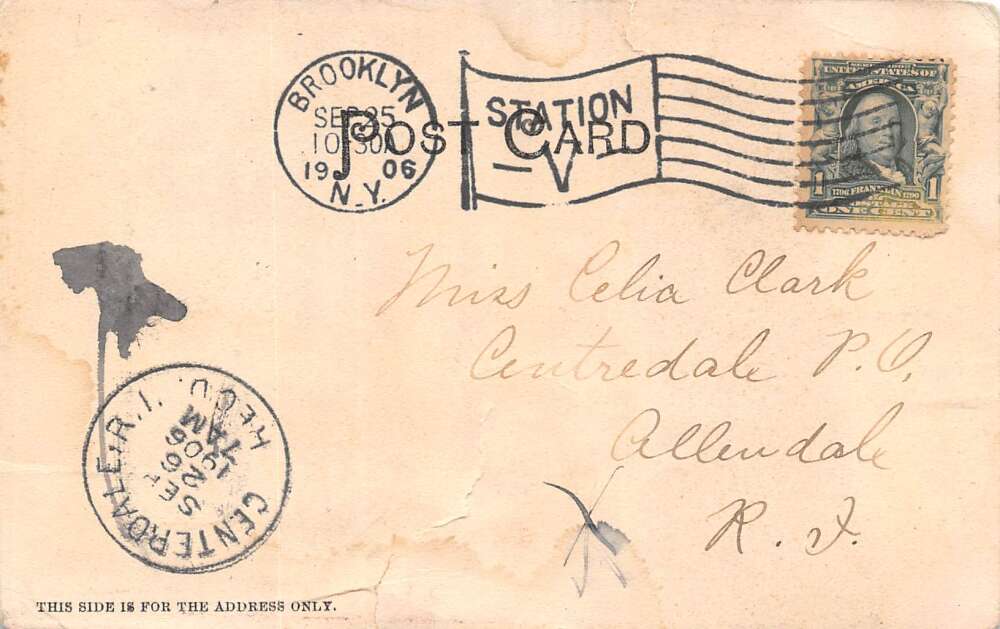 BROOKLYN
SEP 25
10 30A
19 06
N.Y.
STATION
V
POST CARD
UNITED STATES OF
AMERICA
1 1706 FRANKLIN 1790 1
ONE CENT
Miss Celia Clark
Centredale P.O.
Allendale
R. I.
CENTERDALE, R.I.
SEP
26
7AM
1906
REC'D.
THIS SIDE IS FOR THE ADDRESS ONLY.